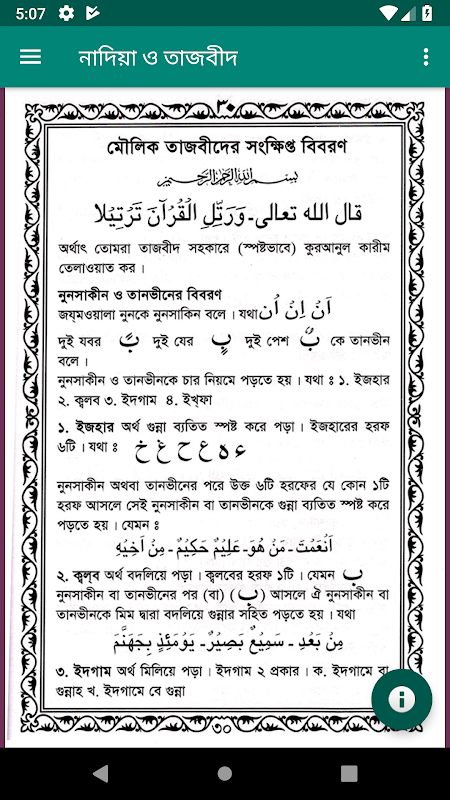 5:07
নাদিয়া ও তাজবীদ
৩০
মৌলিক তাজবীদের সংক্ষিপ্ত বিবরণ
بسم الله الرحمن الرحيم
قال الله تعالى ـ وَرَتِّلِ الْقُرْآنَ تَرْتِيْلًا
অর্থাৎ তোমরা তাজ্বীদ সহকারে (স্পষ্টভাবে) কুরআনুল কারীম
তেলাওয়াত কর ।
নুনসাকীন ও তানভীনের বিবরণ
জয্মওয়ালা নুনকে নুনসাকিন বলে । যথা اَنْ اِنْ اُنْ
দুই যবর بً দুই যের بٍ দুই পেশ بٌ কে তানভীন
বলে ।
নুনসাকীন ও তানভীনকে চার নিয়মে পড়তে হয় । যথা ঃ ১. ইজহার
২. ক্বলব ৩. ইদগাম ৪. ইখ্ফা
১. ইজহার অর্থ গুন্না ব্যতিত স্পষ্ট করে পড়া । ইজহারের হরফ
৬টি । যথা ঃ ء ه ع ح غ خ
নুনসাকীন অথবা তানভীনের পরে উক্ত ৬টি হরফের যে কোন ১টি
হরফ আসলে সেই নুনসাকীন বা তানভীনকে গুন্না ব্যতিত স্পষ্ট করে
পড়তে হয় । যেমন ঃ
اَنْعَمْتَ ـ مَنْ هُوَ ـ عَلِيْمٌ حَكِيْمٌ ـ مِنْ اَخِيْهِ
২. ক্বল্ব অর্থ বদলিয়ে পড়া । ক্বলবের হরফ ১টি । যেমন ب
নুনসাকীন বা তানভীনের পর (বা) (ب) আসলে ঐ নুনসাকীন বা
তানভীনকে মিম দ্বারা বদলিয়ে গুন্নার সহিত পড়তে হয় । যথা
مِنْ بَعْدِ ـ سَمِيْعٌ بَصِيْرٌ ـ يَوْمَئِذٍ بِجَهَنَّمَ
৩. ইদগাম অর্থ মিলিয়ে পড়া । ইদগাম ২ প্রকার । ক. ইদগামে বা
গুন্নাহ খ. ইদগামে বে গুন্না
৩০